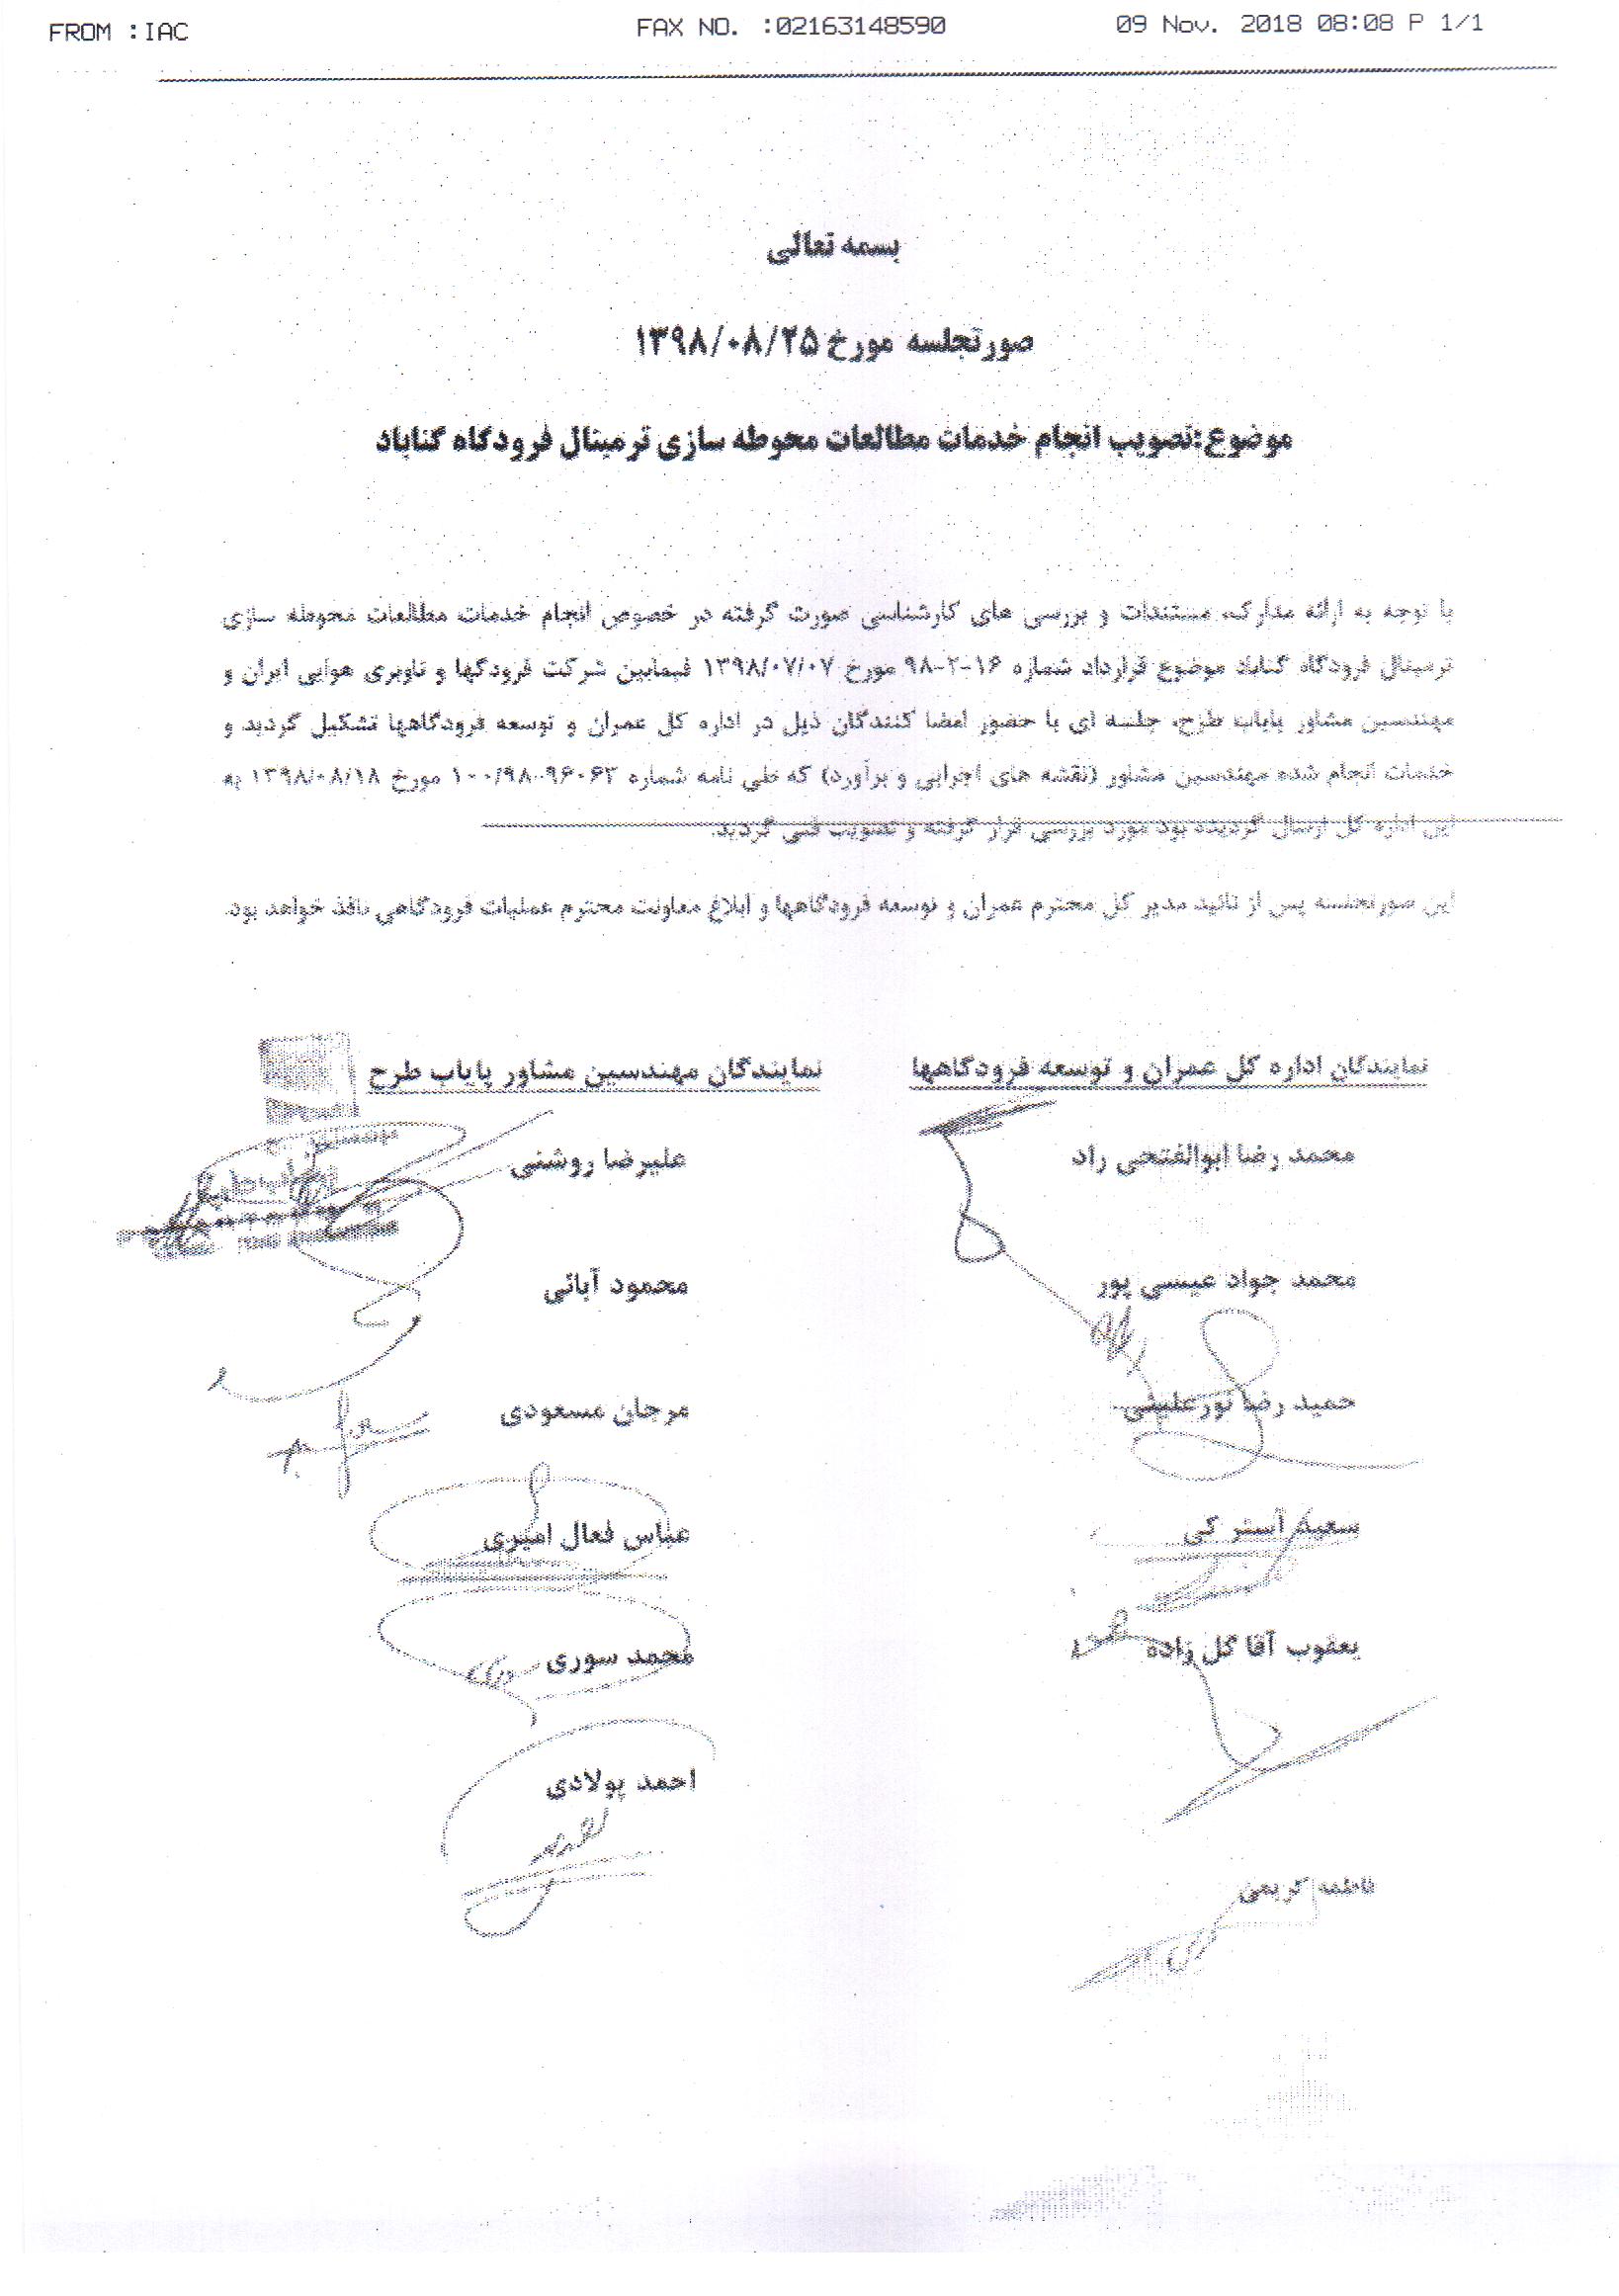 FROM :IAC FAX NO. :02163148590 09 Nov. 2018 08:08 P 1/1
بسمه تعالی
صورتجلسه مورخ ۱۳۹۸/۰۸/۲۵
موضوع:تصویب انجام خدمات مطالعات محوطه سازی ترمینال فرودگاه گناباد
با توجه به ارائه مدارک، مستندات و بررسی های کارشناسی صورت گرفته در خصوص انجام خدمات مطالعات محوطه سازی
ترمینال فرودگاه گناباد موضوع قرارداد شماره ۱۶-۲-۹۸ مورخ ۱۳۹۸/۰۷/۰۷ فیمابین شرکت فرودگها و ناوبری هوایی ایران و
مهندسین مشاور پایاب طرح، جلسه ای با حضور امضا کنندگان ذیل در اداره کل عمران و توسعه فرودگاهها تشکیل گردید و
خدمات انجام شده مهندسین مشاور (نقشه های اجرایی و برآورد) که طی نامه شماره ۱۰۰/۹۸-۹۶۰۶۳ مورخ ۱۳۹۸/۰۸/۱۸ به
این اداره کل ارسال گردیده بود مورد بررسی قرار گرفته و تصویب فنی گردید.
این صورتجلسه پس از تائید مدیر کل محترم عمران و توسعه فرودگاهها و ابلاغ معاونت محترم عملیات فرودگاهی نافذ خواهد بود.
نمایندگان اداره کل عمران و توسعه فرودگاهها
محمد رضا ابوالفتحی راد
محمد جواد عیسی پور
حمید رضا نورعلیئی
سعید آستر کی
یعقوب آقا گل زاده
فاطمه کریمی
نمایندگان مهندسین مشاور پایاب طرح
علیرضا روشنی
محمود آبائی
مرجان مسعودی
عباس فعال امیری
محمد سوری
احمد پولادی